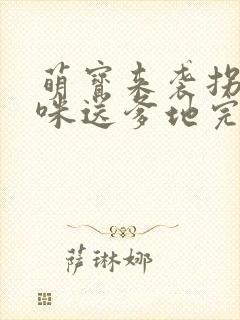 萌宝来袭拐
咪送爹地完
萨琳娜